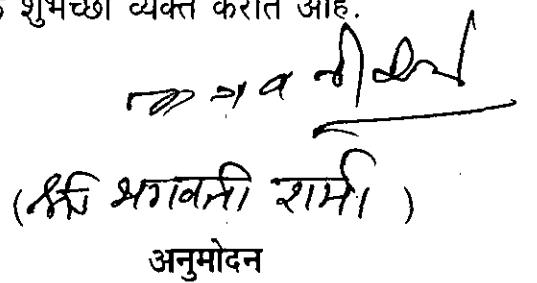 शुभेच्छा व्यक्त करीत आहे.
(श्री भगवती शर्मा)
अनुमोदन